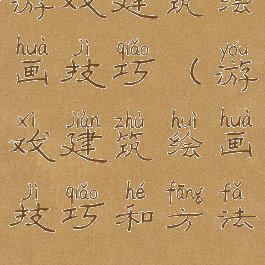 游戏建筑绘
huà jì qiǎo yóu
画技巧（游
xì jiàn zhù huì huà
戏建筑绘画
jì qiǎo hé fāng fǎ
技巧和方法